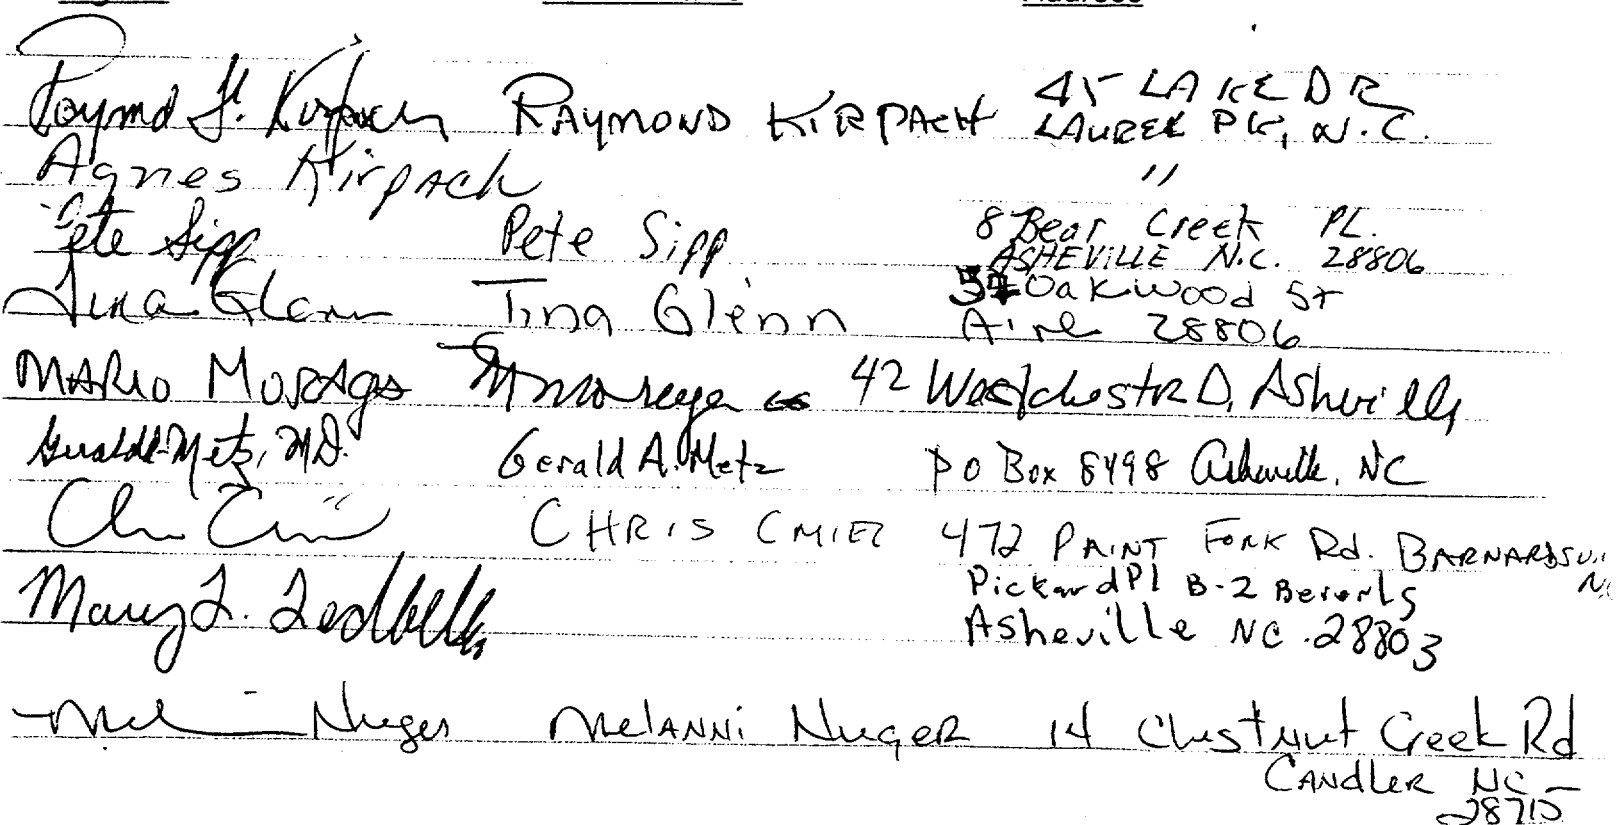 Address
Raymond F. Kirpach RAYMOND KIRPACH 45 LAKE DR
LAUREL PK, N.C.
Agnes Kirpach "
Pete Sipp Pete Sipp 8 Bear Creek PL.
ASHEVILLE N.C. 28806
Tina Glenn Tina Glenn Oakwood St
28806
MARIO MORAGA 42 Asheville
Gerald A. Metz, M.D. Gerald A. Metz PO Box 8498 Asheville, NC
CHRIS CMIEL 472 PAINT FORK Rd. BARNARDSV
Pickard Pl B-2 Beverly
Mary L. Ledbetter Asheville NC 28803
Nuger MelANNi NugeR 14 Chestnut Creek Rd
CANDLER NC
28715